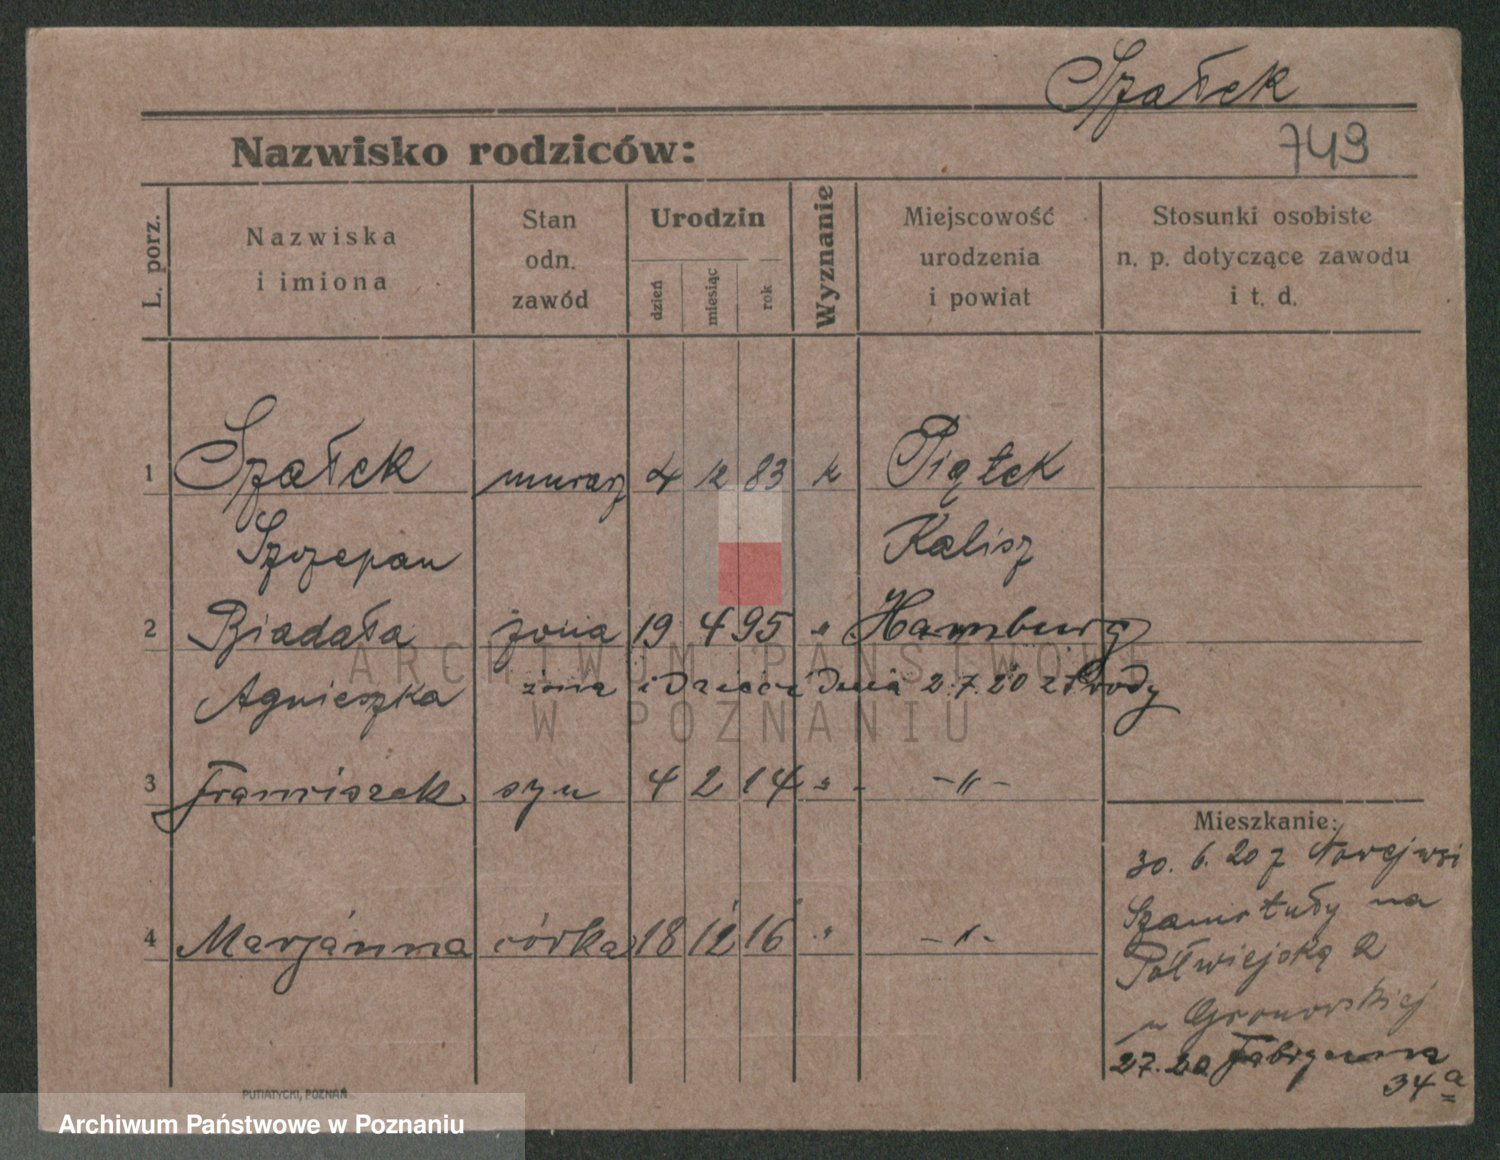 Szałek
749
Nazwisko rodziców:
L. porz.
Nazwiska
i imiona
Stan
odn.
zawód
Urodzin
dzień
miesiąc
rok
Wyznanie
Miejscowość
urodzenia
i powiat
Stosunki osobiste
n. p. dotyczące zawodu
i t. d.
1 Szałek murarz 4 12 83 k Piątek
Szczepan Kalisz
2 Biadała żona 19 4 95 " Hamburg
Agnieszka żona i Dzieci Dnia 2.7.20 z Środy
3 Franciszek syn 4 2 14 " -"-
4 Marjanna córka 18 12 16 " -"-
Mieszkanie:
30. 6. 20 z Nowejwsi
Szamotuły na
Półwiejską 2
u Gronowskiej
2 7. 20 Fabryczna
34a
PUTIATYCKI, POZNAŃ
ARCHIWUM PAŃSTWOWE
W POZNANIU
Archiwum Państwowe w Poznaniu